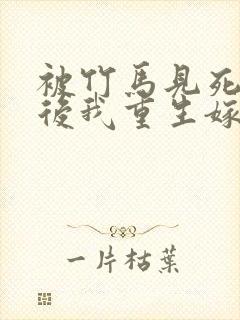 被竹馬見死
後我重生嫁
一片枯葉